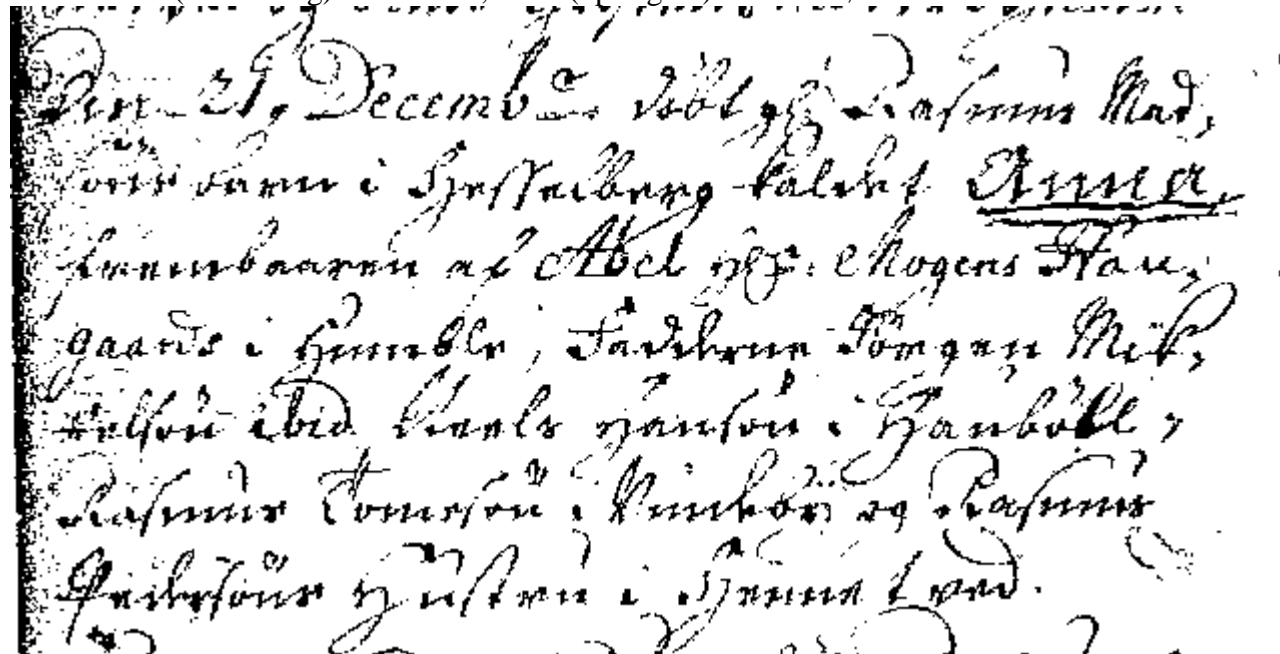 Den 21. Decemb. döbt Rasmus Mad,
söns barn i Hesselberg kaldet Anna,
frembaaren af Abel Mogens Hau,
gaards i Humble, Fadderne Jörgen Mik,
kelsön ibid Niels Hansön i Hanböll,
Rasmus Tomesön i Vinkær og Rasmus
Pedersöns Hustru i Hennetved.